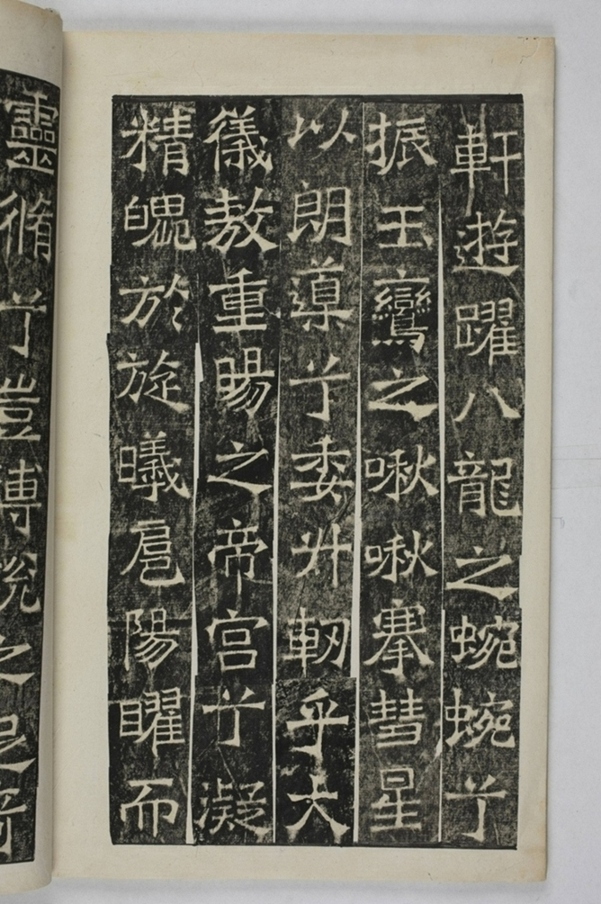 軒遊躍八龍之蜿蜿兮
振玉鸞之啾啾搴彗星
以朗導兮委升軔乎大
儀敖重暘之帝宮兮凝
精魄於旋曦扈陽曜而
靈脩兮豈之